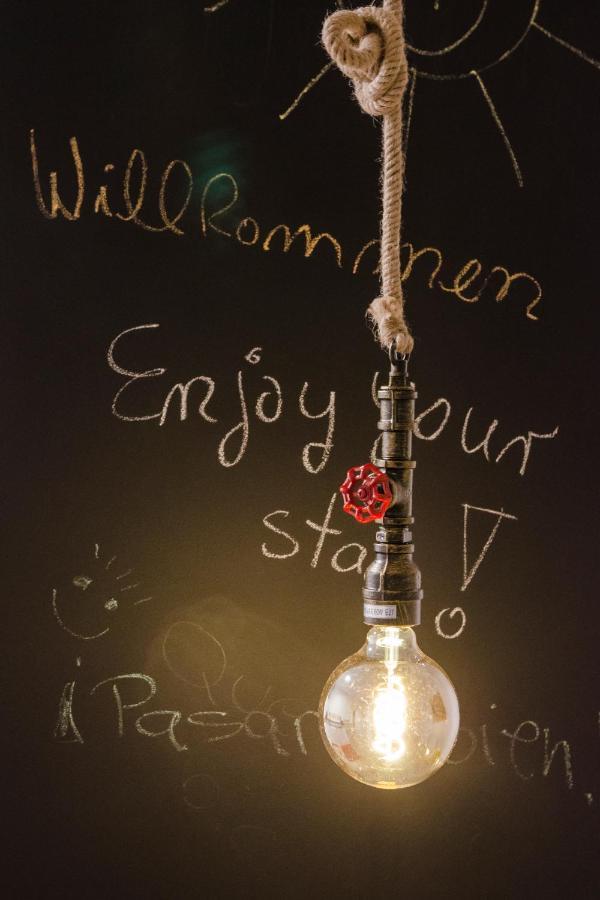 Willkommen
Enjoy your
stay!
¡Pasarlo bien!